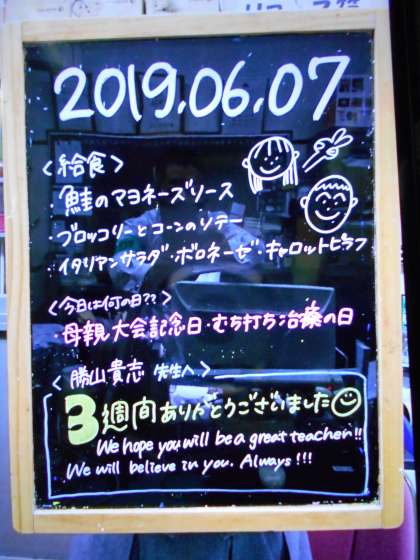 2019.06.07
<給食>
・鮭のマヨネーズソース
・ブロッコリーとコーンのソテー
・イタリアンサラダ・ボロネーゼ・キャロットピラフ
<今日は何の日???>
・母親大会記念日・むち打ち治療の日
<勝山貴志 先生へ>
3週間ありがとうございました
We hope you will be a great teacher!!
We will believe in you. Always!!!